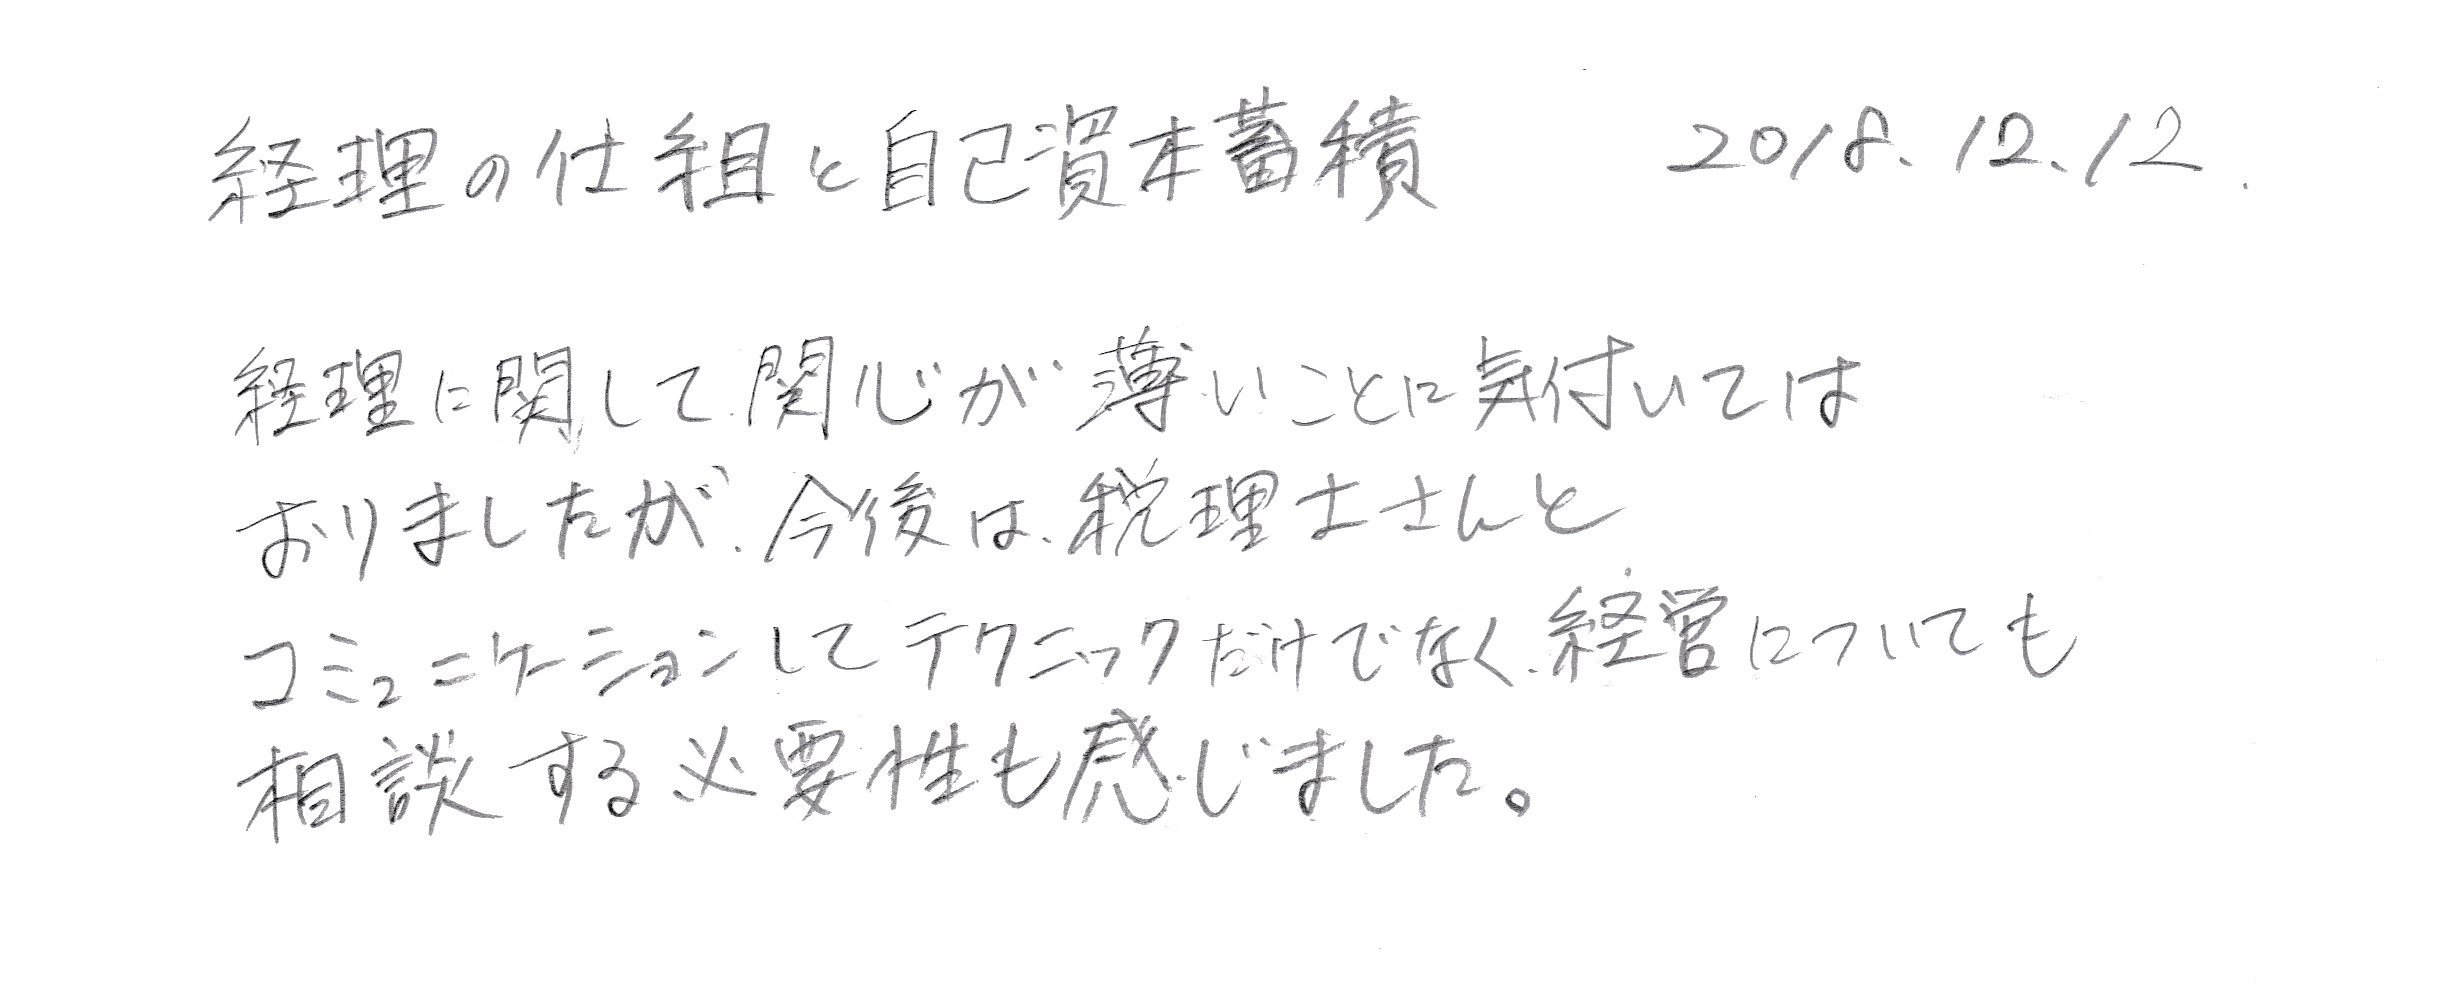 経理の仕組と自己資本蓄積 2018.12.12.
経理に関して関心が薄いことに気付いては
おりましたが、今後は、税理士さんと
コミュニケーションしてテクニックだけでなく、経営についても
相談する必要性も感じました。